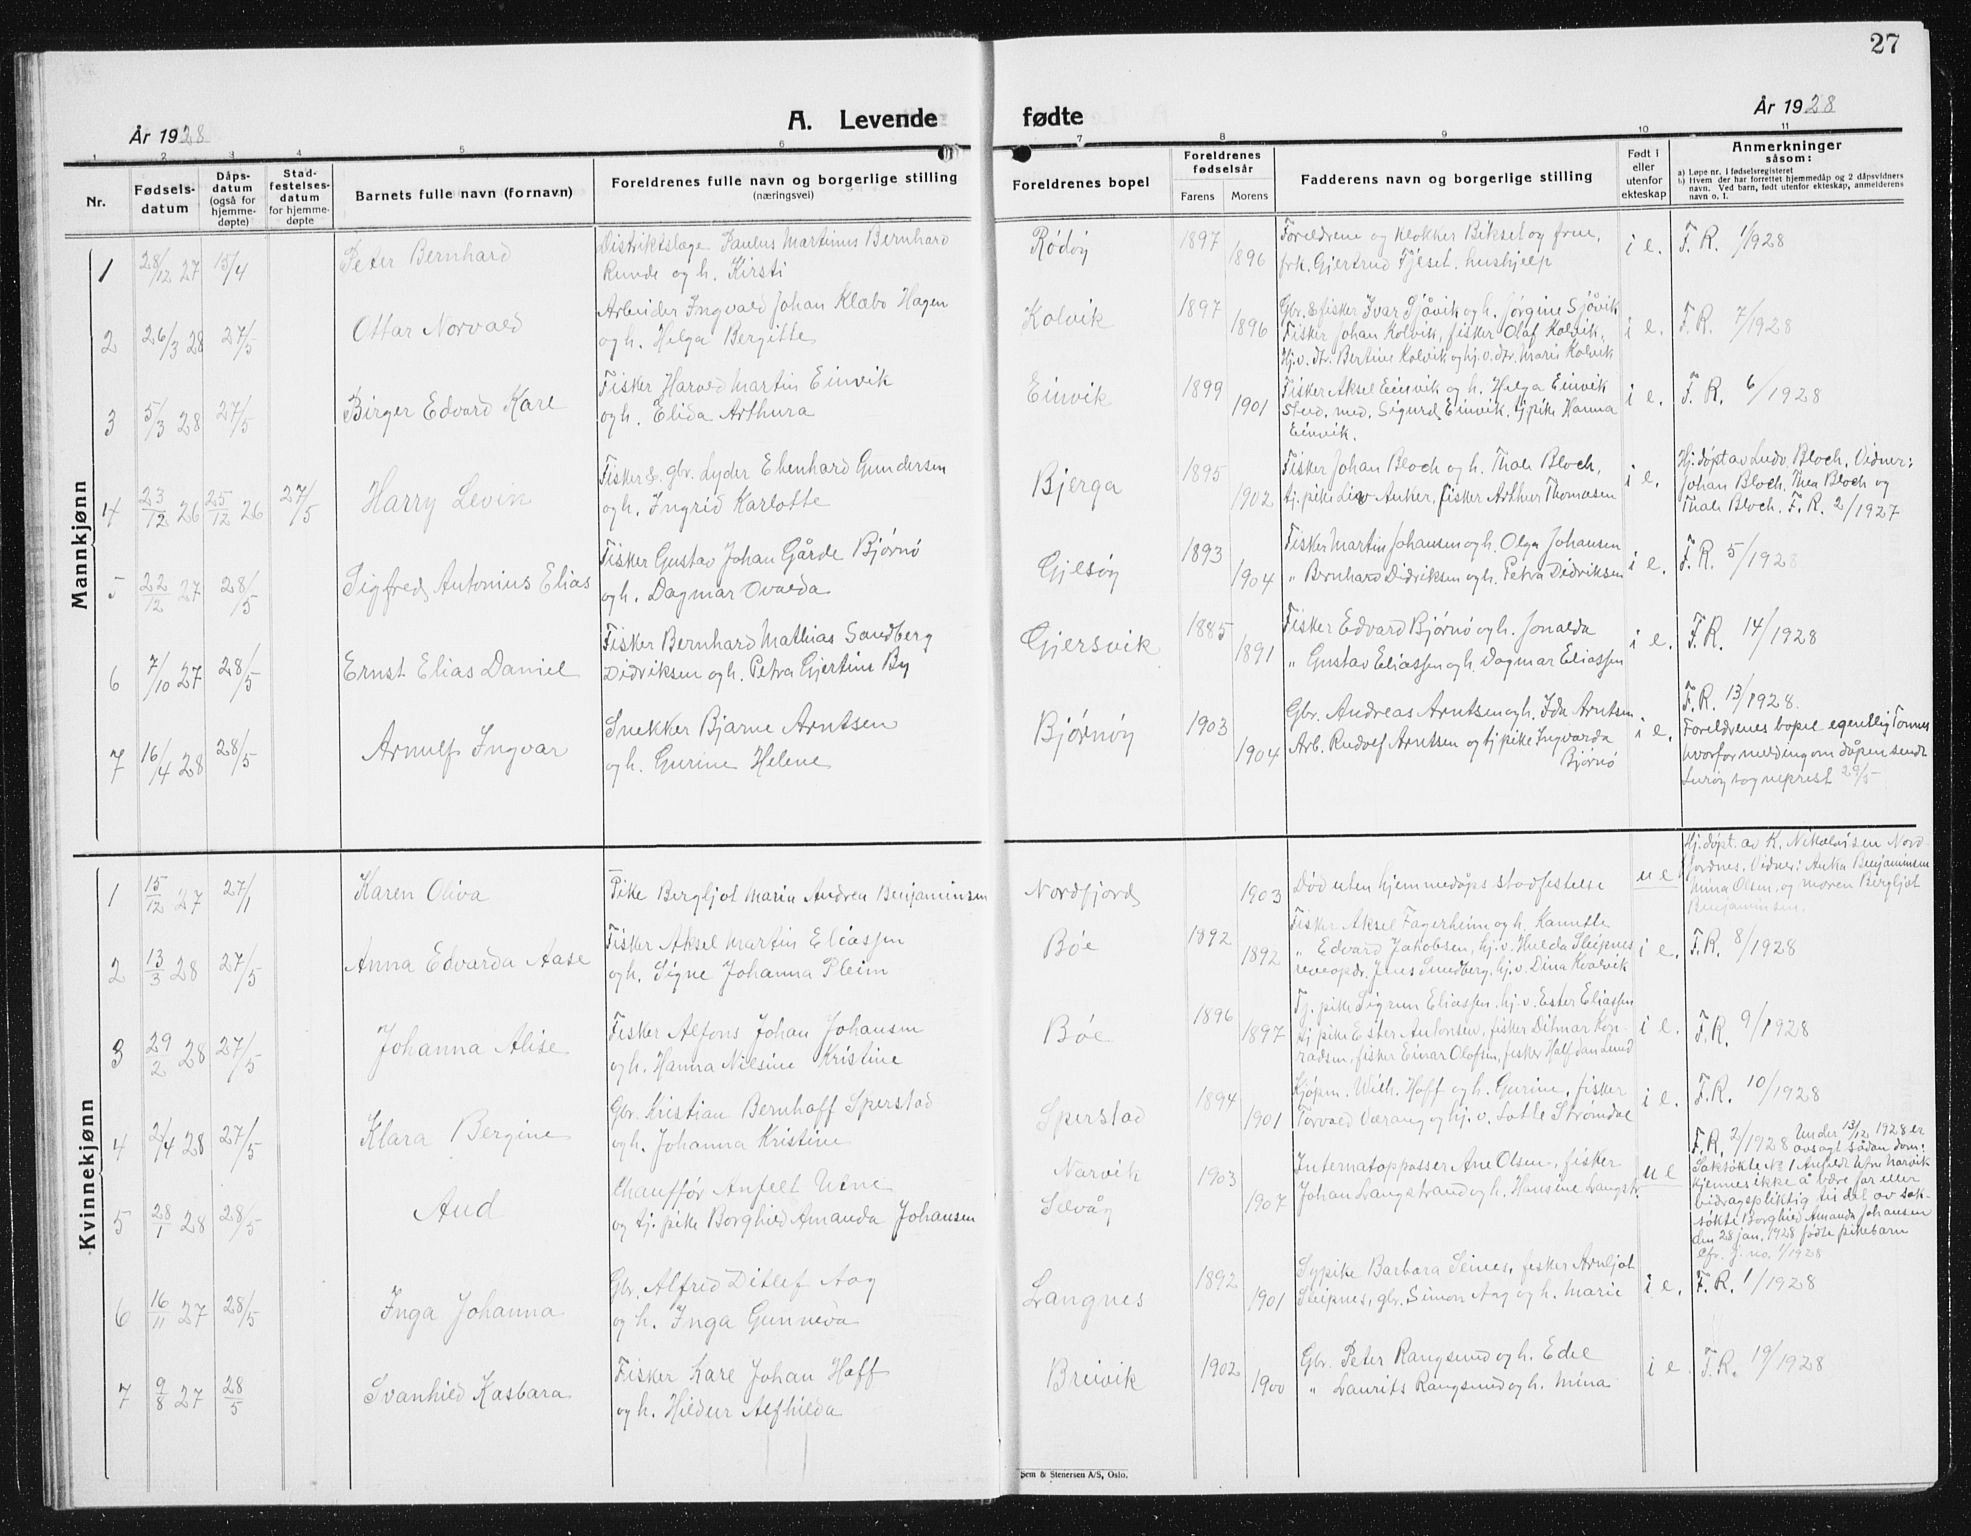 27
År 1928
A. Levende fødte
År 1928
1 2 3 4 5 6 7 8 9 10 11
Nr.
Fødsels-
datum
Dåps-
datum
(også for
hjemme-
døpte)
Stad-
festelses-
datum
for hjemme-
døpte
Barnets fulle navn (fornavn)
Foreldrenes fulle navn og borgerlige stilling
(næringsvei)
Foreldrenes bopel
Foreldrenes
fødselsår
Farens Morens
Fadderens navn og borgerlige stilling
Født i
eller
utenfor
ekteskap
Anmerkninger
såsom:
a) Løpe nr. i fødselsregisteret
b) Hvem der har forrettet hjemmedåp og 2 dåpsvidners
navn. Ved barn, født utenfor ekteskap, anmelderens
navn o. l.
Mannkjønn
1 28/12 27 15/4 Peter Bernhard
Distriktslæge Paulus Martinius Bernhard
Runde og h. Kirsti
Rødøy 1897 1896
Foreldrene og klokker Biksel og frue,
frk. Gjertrud Fjeset, hushjelp
i e. F.R. 1/1928
2 26/3 28 27/5 Ottar Norvald
Arbeider Ingvald Johan Klæbo Hagen
og h. Helga Bergitte
Kolvik 1897 1896
Gbr. & fisker Ivar Sjåvik og h. Jørgine Sjåvik
Fisker Johan Kolvik, fisker Olaf Kolvik,
Hj.v. dtr. Bertine Kolvik og hj.v. dtr. Marie Kolvik
i e. F.R. 7/1928
3 5/3 28 27/5 Birger Edvard Kare
Fisker Harald Martin Einvik
og h. Elida Arthura
Einvik 1899 1901
Fisker Aksel Einvik og h. Helga Einvik
stud. med. Sigurd Einvik, tj.pike Hanna
Einvik.
i e. F.R. 6/1928
4 23/12 26 25/12 26 27/5 Harry Levin
Fisker & gbr. Lyder Ebenhard Gundersen
og h. Ingrid Karlotte
Bjerga 1895 1902
Fisker Johan Bloch og h. Thale Bloch,
tj.pike Liv Anker, fisker Arthur Thomæsen
i e.
Hj.døpt av Ludv. Bloch. Vidner:
Johan Bloch, Thea Bloch og
Thale Bloch. F.R. 2/1927
5 22/12 27 28/5 Sigfred Antonius Elias
Fisker Gustav Johan Gårde Bjørnø
og h. Dagmar Ovalda
Gjesøy 1893 1904
Fisker Martin Johansen og h. Olga Johansen
" Bernhard Didriksen og h. Petra Didriksen
i e. F.R. 5/1928
6 7/10 27 28/5 Ernst Elias Daniel
Fisker Bernhard Mathias Sandberg
Didriksen og h. Petra Gjertine By
Gjersvik 1885 1891
Fisker Edvard Bjørnø og h. Jonalda
" Gustav Eliassen og h. Dagmar Eliassen
i e. F.R. 14/1928
7 16/4 28 28/5 Arnulf Ingvar
Snekker Bjarne Arntsen
og h. Gurine Helene
Bjørnøy 1903 1904
Gbr. Andreas Arntsen og h. Ida Arntsen
Arb. Rudolf Arntsen og tj.pike Ingvarda
Bjørnø
i e.
F.R. 13/1928.
Foreldrenes bopel egentlig Tonnes
hvorfor melding om dåpen sendt
Lurøy sogneprest 29/5
Kvinnekjønn
1 15/12 27 27/1 Karen Oliva
Pike Bergljot Marie Andrea Benjaminsen
Nordfjord 1903
Død uten hjemmedåps stadfestelse
u e
Hj.døpt. av K. Nikolaisen Nord-
fjordnes. Vidner: Anka Benjaminsen
Mina Olsen, og moren Bergljot
Benjaminsen.
2 13/3 28 27/5 Anna Edvarda Aase
Fisker Aksel Martin Eliassen
og h. Signe Johanna Pleim
Bøe 1892 1892
Fisker Aksel Fagerheim og h. Kamille
" Edvard Jakobsen, hj.v. Hulda Sleipnes
reveopdr. Jens Sundberg, hj.v. Dina Kvalvik
i e. F.R. 8/1928
3 29/2 28 27/5 Johanna Alise
Fisker Alfons Johan Johansen
og h. Hanna Nilsine Kristine
Bøe 1896 1897
Tj.pike Sigrun Eliassen, hj.v. Ester Eliassen
tj.pike Ester Antonsen, fisker Ditmar Kon-
radsen, fisker Einar Olofsen, fisker Halfdan Lund
i e. F.R. 9/1928
4 2/4 28 27/5 Klara Bergine
Gbr. Kristian Bernhoff Sperstad
og h. Johanna Kristine
Sperstad 1894 1901
Kjøpm. Wilh. Hoff og h. Gurine, fisker
Torvald Værang og hj.v. Lotte Strømdal
i e. F.R. 10/1928
5 28/1 28 28/5 Aud
Chauffør Anfelt Urne
og tj.pike Borghild Amanda Johansen
Narvik
Selvåg
1903 1907
Internatoppasser Ane Olsen, fisker
Johan Langstrand og h. Hansine Langstr.
u e
F.R. 2/1928 Under 13/12 1928 er
avsagt sådan dom:
Saksøkte Nr. 1 Anfeldt Urne Narvik
kjennes ikke å være far eller
bidragspliktig til det av sak-
søkte Borghild Amanda Johansen
den 28 jan. 1928 fødte pikebarn
Cfr. J. no. 1/1928
6 16/11 27 28/5 Inga Johanna
Gbr. Alfred Ditlef Aag
og h. Inga Gunneva
Langnes 1892 1901
Sypike Barbara Seines, fisker Arnljot
Sleipnes, gbr. Simon Aag og h. Marie
i e. F.R. 1/1928
7 9/8 27 28/5 Svanhild Kasbara
Fisker Kare Johan Hoff
og h. Hildur Alfhilda
Breivik 1902 1900
Gbr. Peter Rangsund og h. Edel
" Laurits Rangsund og h. Mina
i e F.R. 19/1928
Sem & Stenersen A/S, Oslo.